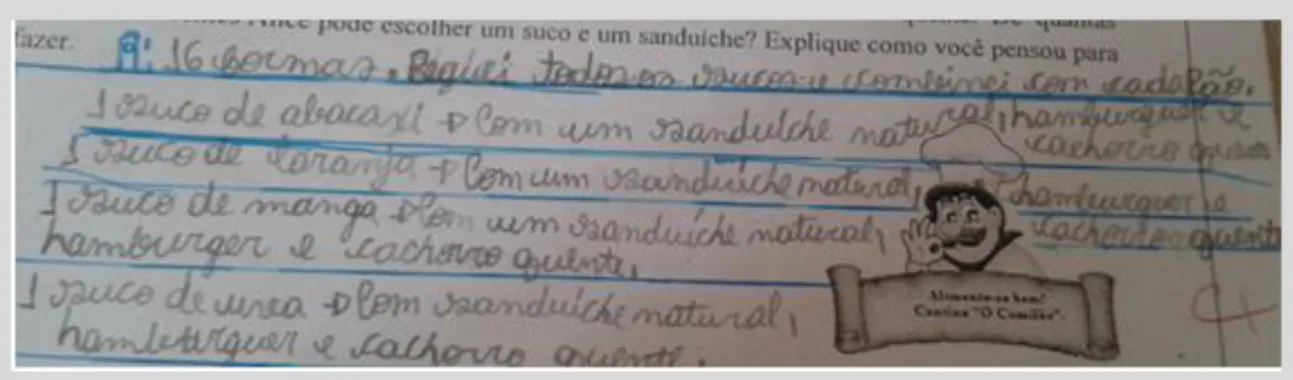 Alice pode escolher um suco e um sanduíche? Explique como você pensou para
fazer.
R: 16 formas. Peguei todos os sucos e combinei com cada Pão.
1 suco de abacaxi → Com um sanduíche natural, hamburguer e
cachorro quente
1 suco de laranja → Com um sanduíche natural, hamburguer e
cachorro quente
1 suco de manga → Com um sanduíche natural,
hamburger e cachorro quente,
1 suco de uva → Com sanduíche natural,
hamburguer e cachorro quente.
Alimente-se bem!
Cantina "O Comilão".